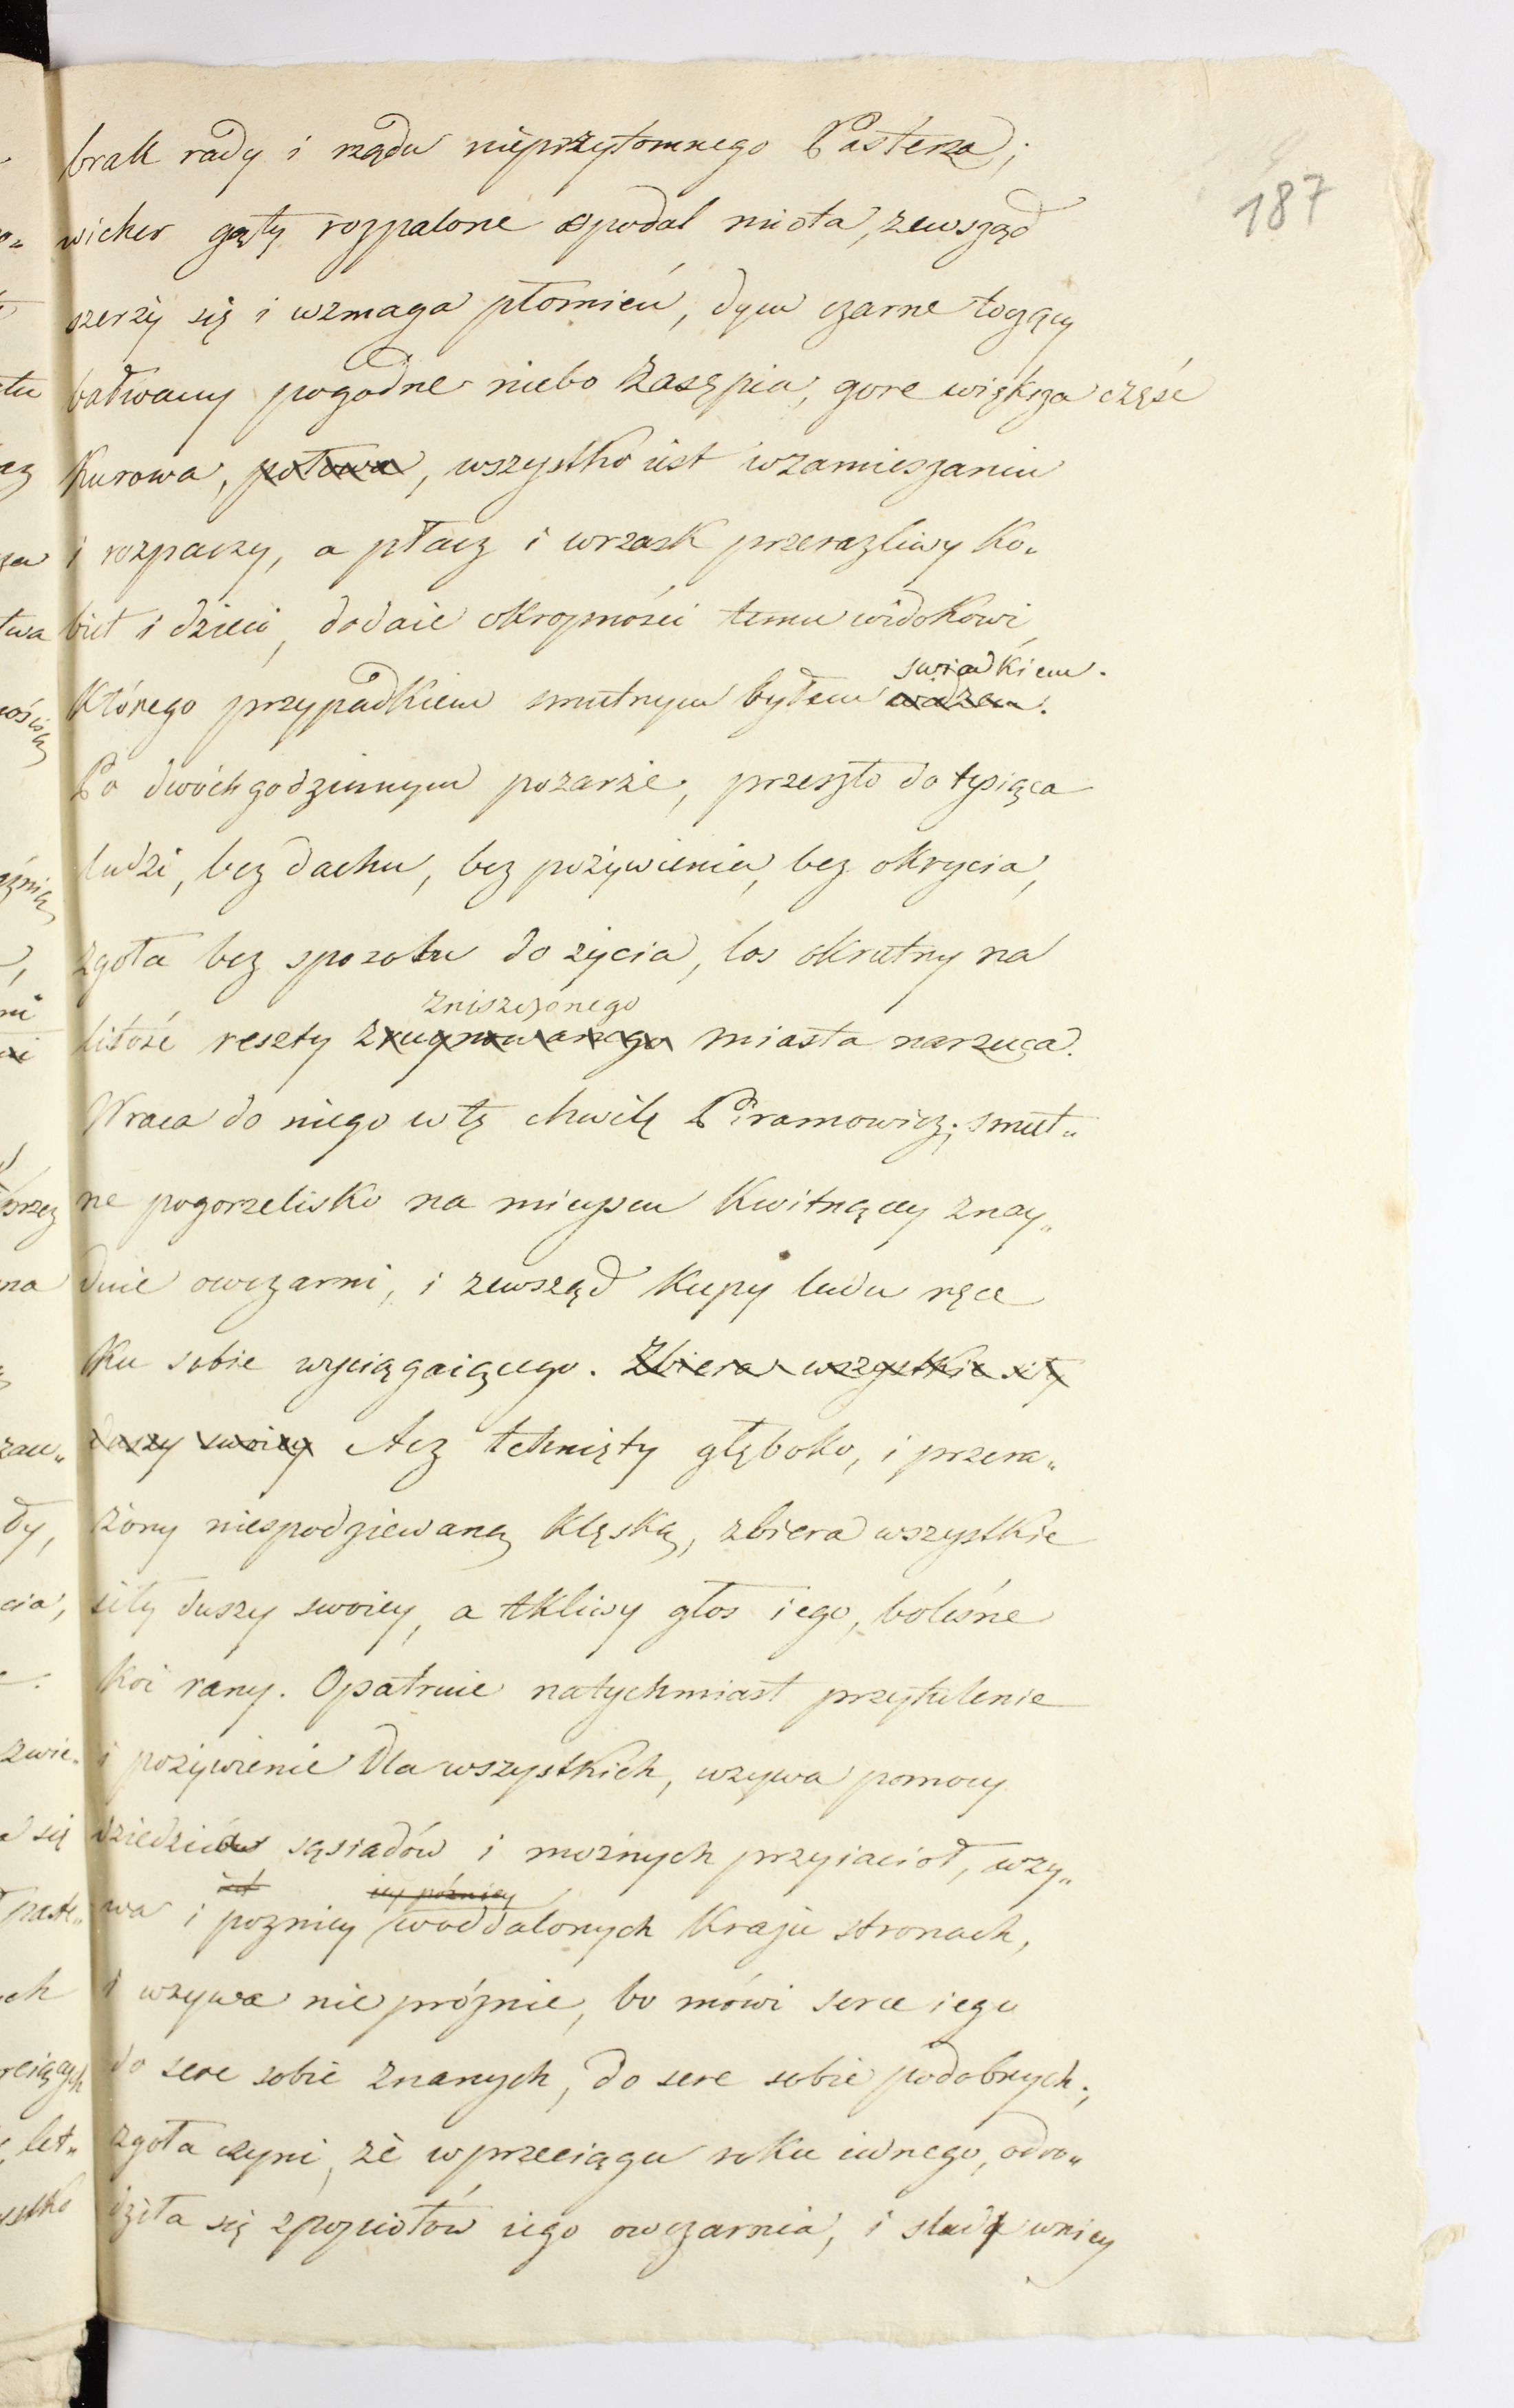 187
brak rady i rządu nieprzytomnego Pasterza;
wicher gąty rozpalone opodal miota, zewsząd
szerzy się i wzmaga płomień, dym czarne toczący
bałwany pogodne niebo zasępia, gore większa część
Kurowa, połowa, wszystko iest wzamieszaniu
i rozpaczy, a płacz i wrzask przerazliwy Ko„
biet i dzieci, dodaie okropności temu widokowi,
swiadkiem.
którego przypadkiem smutnym byłem widzem.
Po dwóchgodzinnym pozarze, przeszło do tysiąca
ludzi, bez dachu, bez pożywienia, bez okrycia,
zgoła bez sposobu do życia, los okrutny na
zniszczonego
litość reszty zrujnowanego miasta narzuca.
Wraca do niego w tę chwilę Piramowicz; smut„
ne pogorzelisko na mieyscu Kwitnący znay„
duie owczarni, i zewsząd Kupy ludu ręce
Ku sobie wyciągaiącego. Zbiera wszystkie siły
duszy swoiey Acz tchnięty głęboko, i przera„
żony niespodziewaną klęską, zbiera wszystkie
siły duszy swoiey, a tkliwy głos iego, boleśne
Koi rany. Opatruie natychmiast przytulenie
i pożywienie dla wszystkich, wzywa pomocy
dziedziców sąsiadów i możnych przyiaciół, wzy„
iey pózniey
wa i pozniey woddalonych Kraju stronach,
i wzywa nie próznie, bo mówi serce iego
do serc sobie znanych, do serc sobie podobnych;
zgoła czyni, że wprzeciągu roku iednego, odro„
dziła się zpopiołów iego owczarnia, i slady wniey